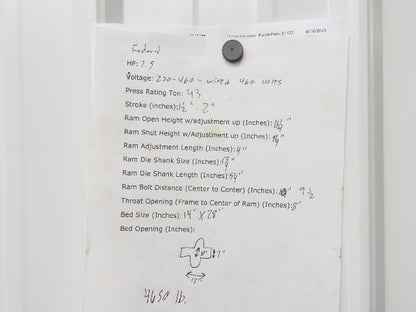 Punch Press
Federal
HP: 7.5
Voltage: 230-460 - wired 460 volts
Press Rating Ton: 43
Stroke (inches): 1½" 2"
Ram Open Height w/adjustment up (Inches):
Ram Shut Height w/Adjustment up (Inches):
Ram Adjustment Length (Inches): 4"
Ram Die Shank Size (Inches):
Ram Die Shank Length (Inches):
Ram Bolt Distance (Center to Center) (Inches): 9 ½
Throat Opening (Frame to Center of Ram) (Inches): 8"
Bed Size (Inches): 14" X 28"
Bed Opening (Inches):
7"
4650 lb.